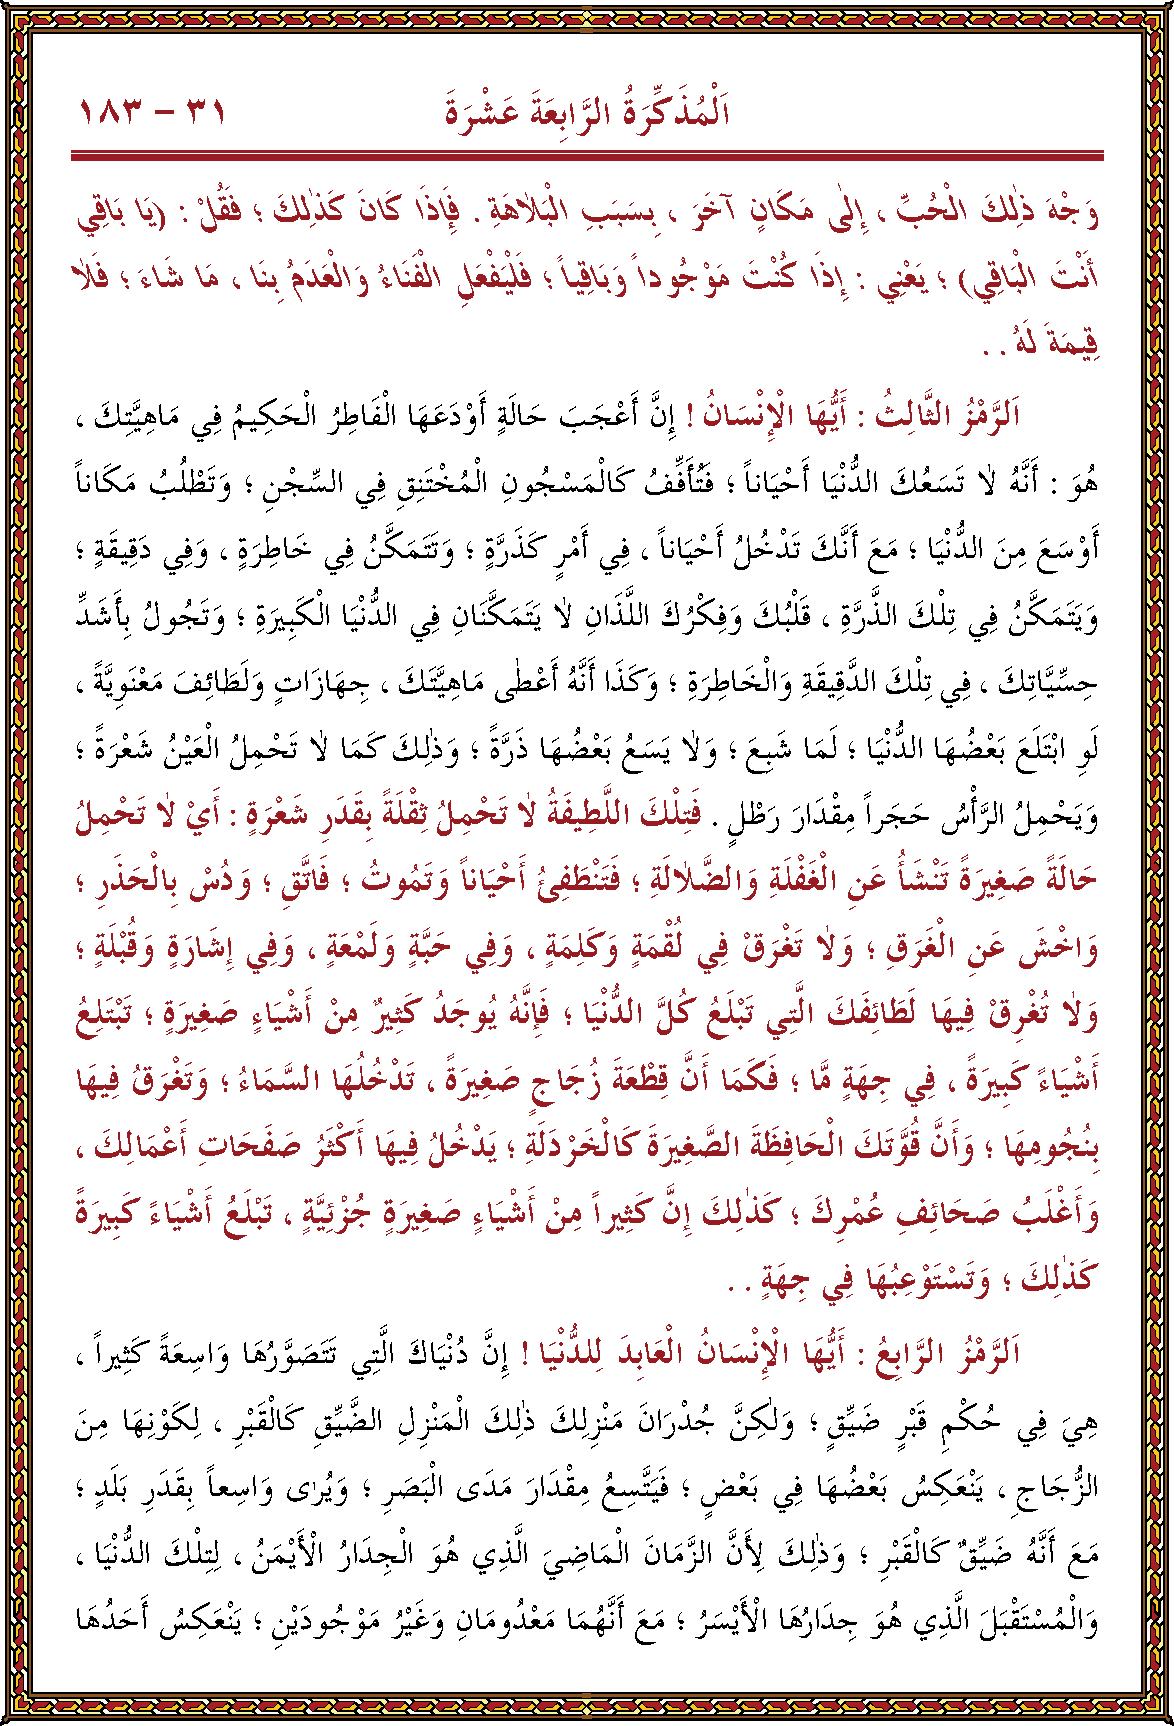 اَلْمُذَكِّرَةُ الرَّابِعَةَ عَشْرَةَ ٣١ – ١٨٣
وَجْهَ ذٰلِكَ الْحُبِّ ، إِلٰى مَكَانٍ آخَرَ ، بِسَبَبِ الْبَلَاهَةِ . فَإِذَا كَانَ كَذٰلِكَ ؛ فَقُلْ : (يَا بَاقِي
أَنْتَ الْبَاقِي) ؛ يَعْنِي : إِذَا كُنْتَ مَوْجُوداً وَبَاقِياً ؛ فَلْيَفْعَلِ الْفَنَاءُ وَالْعَدَمُ بِنَا ، مَا شَاءَ ؛ فَلَا
قِيمَةَ لَهُ . .
اَلرَّمْزُ الثَّالِثُ : أَيُّهَا الْإِنْسَانُ ! إِنَّ أَعْجَبَ حَالَةٍ أَوْدَعَهَا الْفَاطِرُ الْحَكِيمُ فِي مَاهِيَّتِكَ ،
هُوَ : أَنَّهُ لَا تَسَعُكَ الدُّنْيَا أَحْيَاناً ؛ فَتُأَفِّفُ كَالْمَسْجُونِ الْمُخْتَنِقِ فِي السِّجْنِ ؛ وَتَطْلُبُ مَكَاناً
أَوْسَعَ مِنَ الدُّنْيَا ؛ مَعَ أَنَّكَ تَدْخُلُ أَحْيَاناً ، فِي أَمْرٍ كَذَرَّةٍ ؛ وَتَتَمَكَّنُ فِي خَاطِرَةٍ ، وَفِي دَقِيقَةٍ ؛
وَيَتَمَكَّنُ فِي تِلْكَ الذَّرَّةِ ، قَلْبُكَ وَفِكْرُكَ اللَّذَانِ لَا يَتَمَكَّنَانِ فِي الدُّنْيَا الْكَبِيرَةِ ؛ وَتَجُولُ بِأَشَدِّ
حِسِّيَّاتِكَ ، فِي تِلْكَ الدَّقِيقَةِ وَالْخَاطِرَةِ ؛ وَكَذَا أَنَّهُ أَعْطٰى مَاهِيَّتَكَ ، جِهَازَاتٍ وَلَطَائِفَ مَعْنَوِيَّةً ،
لَوِ ابْتَلَعَ بَعْضُهَا الدُّنْيَا ؛ لَمَا شَبِعَ ؛ وَلَا يَسَعُ بَعْضُهَا ذَرَّةً ؛ وَذٰلِكَ كَمَا لَا تَحْمِلُ الْعَيْنُ شَعْرَةً ؛
وَيَحْمِلُ الرَّأْسُ حَجَراً مِقْدَارَ رَطْلٍ . فَتِلْكَ اللَّطِيفَةُ لَا تَحْمِلُ ثِقْلَةً بِقَدَرِ شَعْرَةٍ : أَيْ لَا تَحْمِلُ
حَالَةً صَغِيرَةً تَنْشَأُ عَنِ الْغَفْلَةِ وَالضَّلَالَةِ ؛ فَتَنْطَفِئُ أَحْيَاناً وَتَمُوتُ ؛ فَاتَّقِ ؛ وَدُسْ بِالْحَذَرِ ؛
وَاخْشَ عَنِ الْغَرَقِ ؛ وَلَا تَغْرَقْ فِي لُقْمَةٍ وَكَلِمَةٍ ، وَفِي حَبَّةٍ وَلَمْعَةٍ ، وَفِي إِشَارَةٍ وَقُبْلَةٍ ؛
وَلَا تُغْرِقْ فِيهَا لَطَائِفَكَ الَّتِي تَبْلَعُ كُلَّ الدُّنْيَا ؛ فَإِنَّهُ يُوجَدُ كَثِيرٌ مِنْ أَشْيَاءٍ صَغِيرَةٍ ؛ تَبْتَلِعُ
أَشْيَاءً كَبِيرَةً ، فِي جِهَةٍ مَّا ؛ فَكَمَا أَنَّ قِطْعَةَ زُجَاجٍ صَغِيرَةً ، تَدْخُلُهَا السَّمَاءُ ؛ وَتَغْرَقُ فِيهَا
بِنُجُومِهَا ؛ وَأَنَّ قُوَّتَكَ الْحَافِظَةَ الصَّغِيرَةَ كَالْخَرْدَلَةِ ؛ يَدْخُلُ فِيهَا أَكْثَرُ صَفَحَاتِ أَعْمَالِكَ ،
وَأَغْلَبُ صَحَائِفِ عُمْرِكَ ؛ كَذٰلِكَ إِنَّ كَثِيراً مِنْ أَشْيَاءٍ صَغِيرَةٍ جُزْئِيَّةٍ ، تَبْلَعُ أَشْيَاءً كَبِيرَةً
كَذٰلِكَ ؛ وَتَسْتَوْعِبُهَا فِي جِهَةٍ . .
اَلرَّمْزُ الرَّابِعُ : أَيُّهَا الْإِنْسَانُ الْعَابِدَ لِلدُّنْيَا ! إِنَّ دُنْيَاكَ الَّتِي تَتَصَوَّرُهَا وَاسِعَةً كَثِيراً ،
هِيَ فِي حُكْمِ قَبْرٍ ضَيِّقٍ ؛ وَلٰكِنَّ جُدْرَانَ مَنْزِلِكَ ذٰلِكَ الْمَنْزِلِ الضَّيِّقِ كَالْقَبْرِ ، لِكَوْنِهَا مِنَ
الزُّجَاجِ ، يَنْعَكِسُ بَعْضُهَا فِي بَعْضٍ ؛ فَيَتَّسِعُ مِقْدَارَ مَدَى الْبَصَرِ ؛ وَيُرٰى وَاسِعاً بِقَدَرِ بَلَدٍ ؛
مَعَ أَنَّهُ ضَيِّقٌ كَالْقَبْرِ ؛ وَذٰلِكَ لِأَنَّ الزَّمَانَ الْمَاضِيَ الَّذِي هُوَ الْجِدَارُ الْأَيْمَنُ ، لِتِلْكَ الدُّنْيَا ،
وَالْمُسْتَقْبَلَ الَّذِي هُوَ جِدَارُهَا الْأَيْسَرُ ؛ مَعَ أَنَّهُمَا مَعْدُومَانِ وَغَيْرُ مَوْجُودَيْنِ ؛ يَنْعَكِسُ أَحَدُهَا